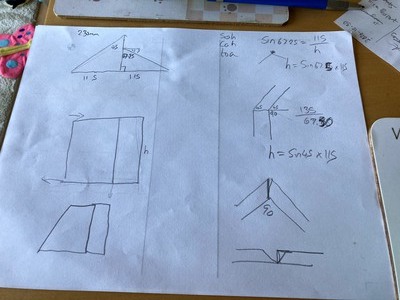 230mm
45
h
11 5
115
Soh
Cah
toa
Sin 67.5 = 115
h
h = Sin 67.5 x 115
h
45 45
90
135
67.50
h = Sin 45 x 115
90